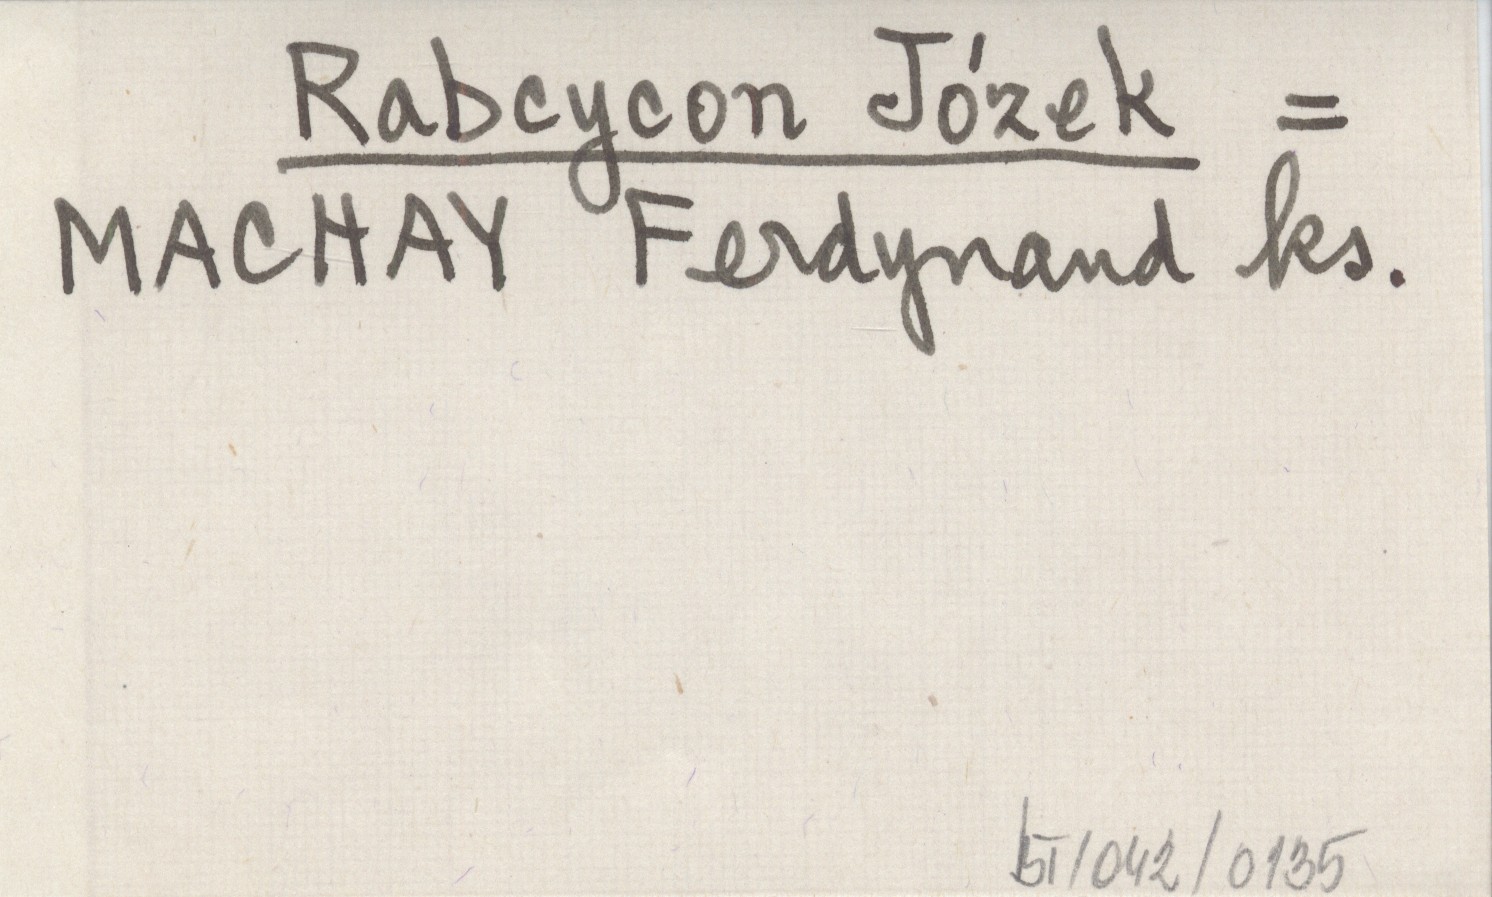 Rabcycon Józek =
MACHAY Ferdynand ks.
bI/042/0135